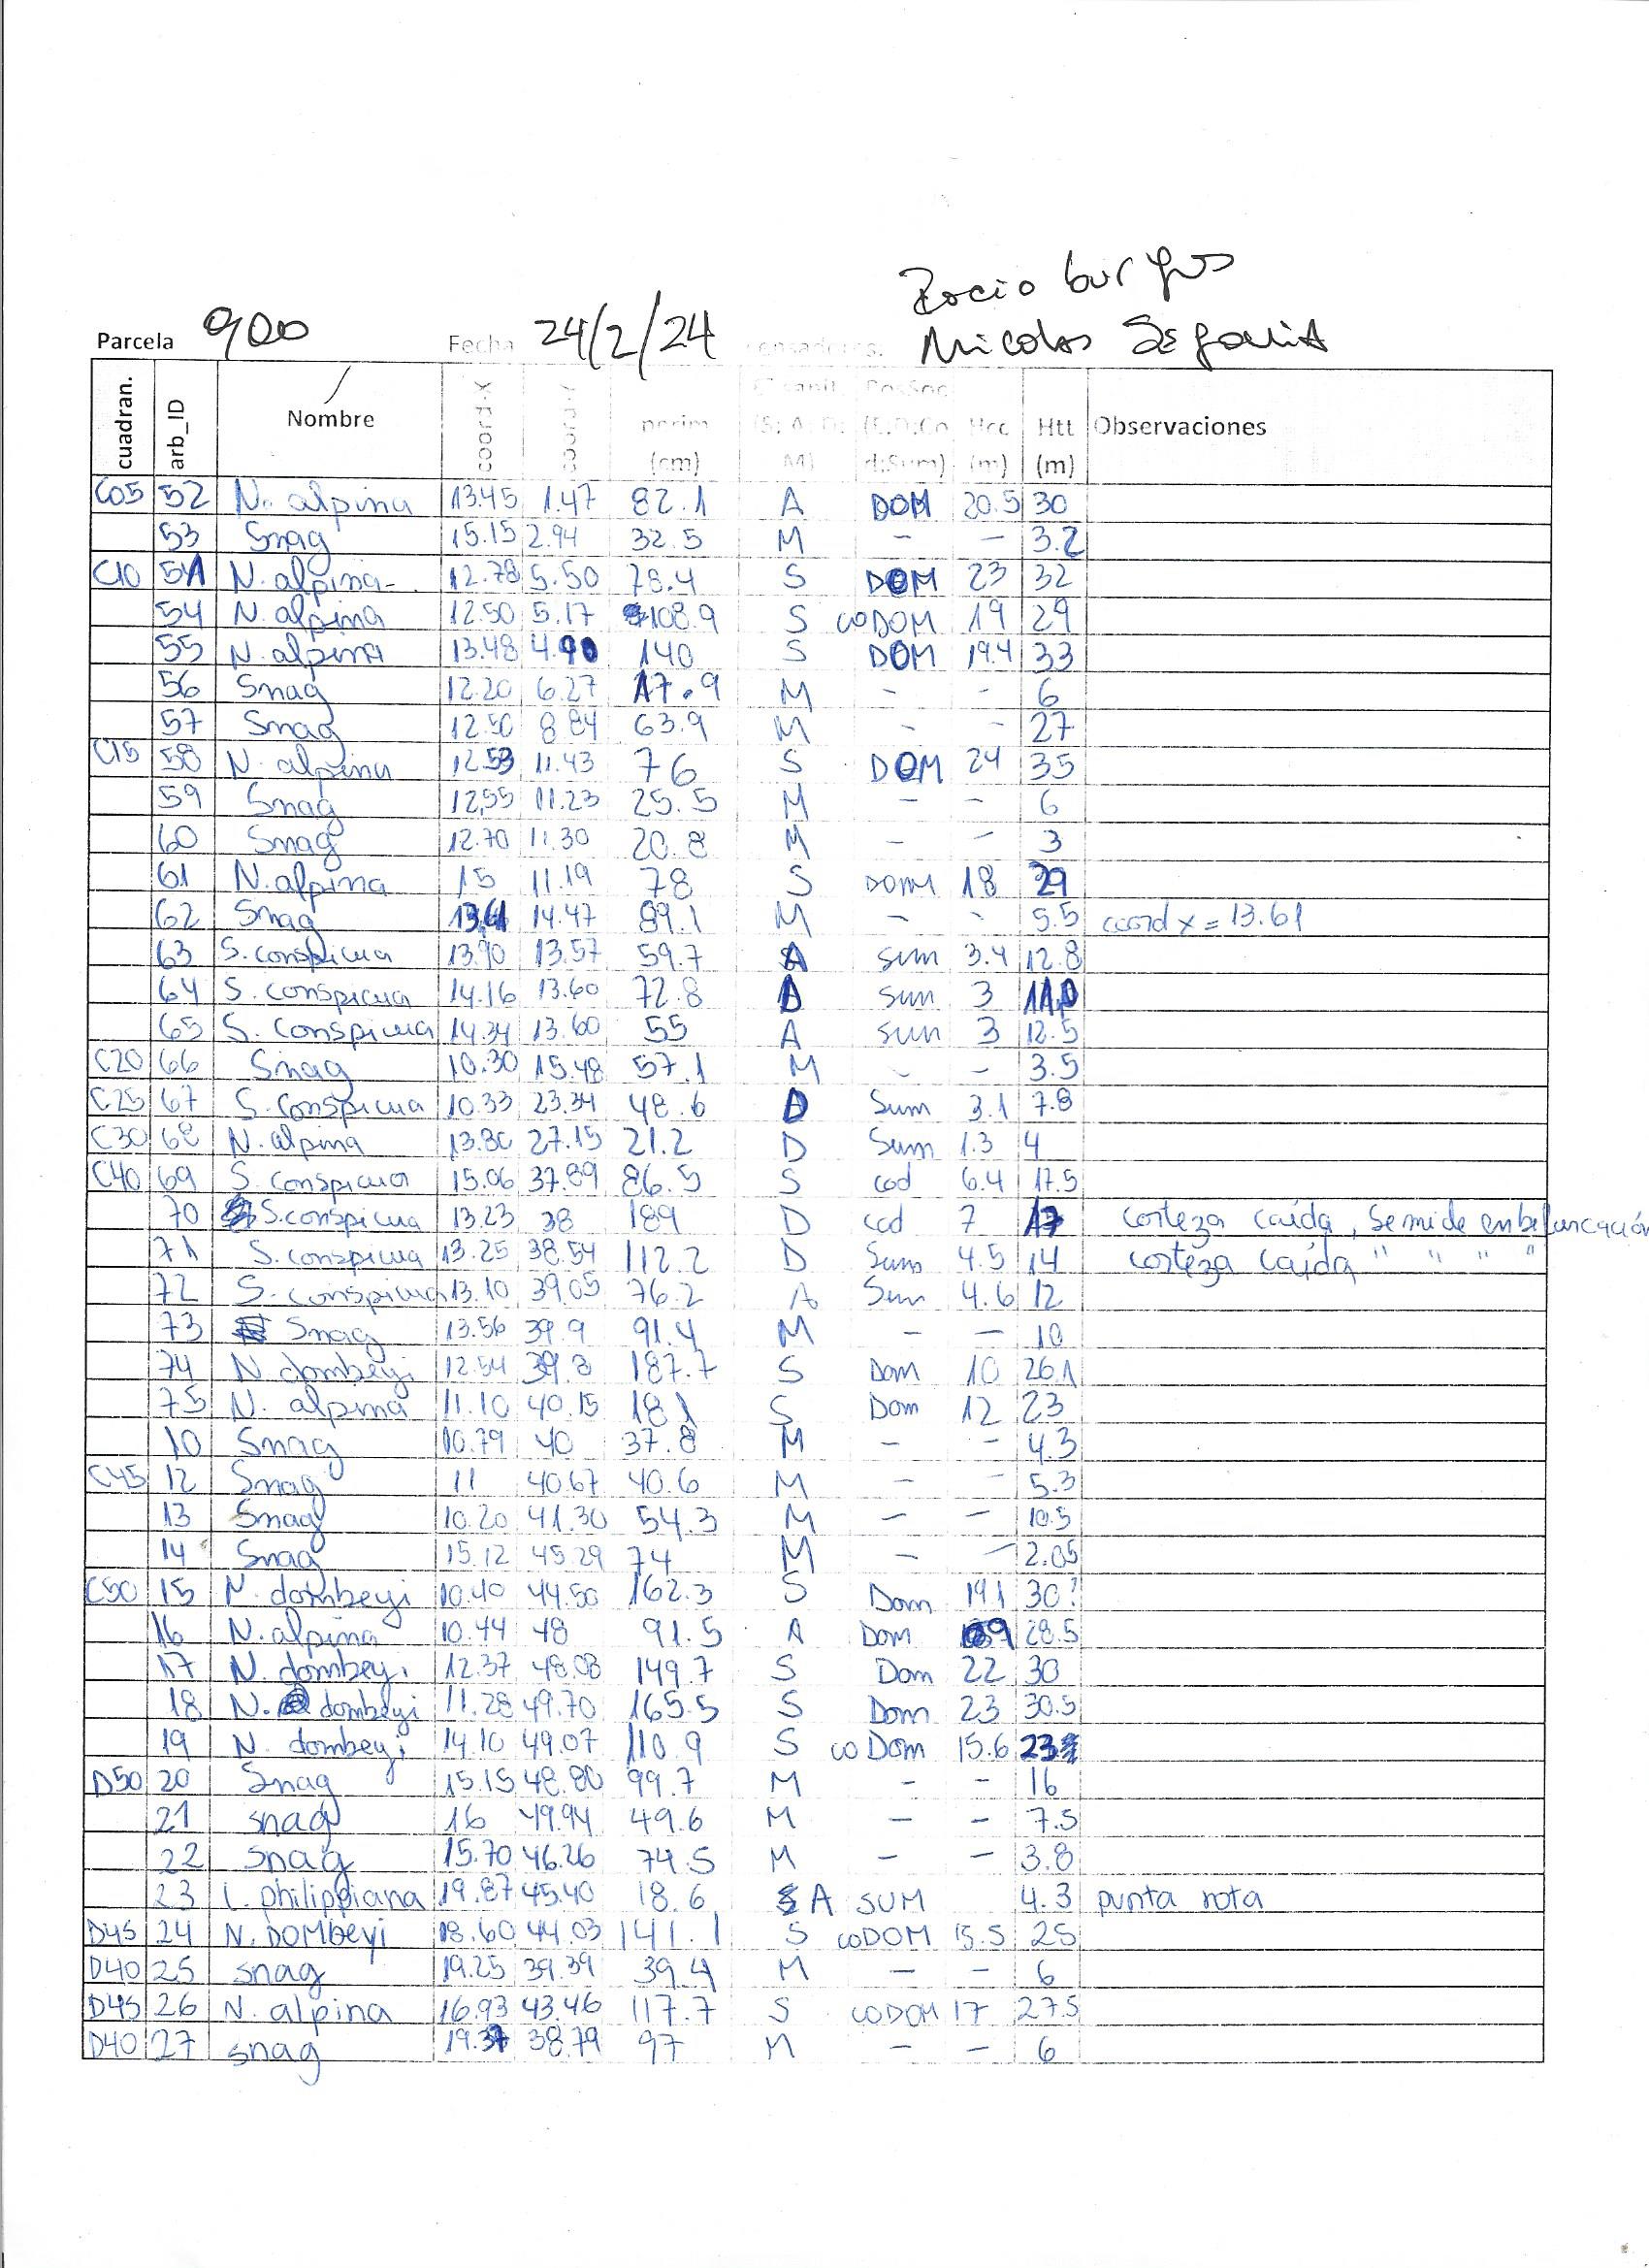 Rocio burgos
Parcela 900 Fecha 24/2/24 Nicolas
cuadran. arb_ID Nombre coord-X perim (cm) M) (m) Htt (m) Observaciones
C05 52 N. alpina 13.45 1.47 82.1 A DOM 20.5 30
53 Snag 15.15 2.94 32.5 M - - 3.2
C10 51 N. alpina 12.78 5.50 78.4 S DOM 23 32
54 N. alpina 12.50 5.17 108.9 S coDOM 19 29
55 N. alpina 13.48 4.90 140 S DOM 19.4 33
56 Snag 12.20 6.27 17.9 M - - 6
57 Snag 12.50 8.84 63.9 M - - 27
C15 58 N. alpina 12.53 11.43 76 S DOM 24 35
59 Snag 12,55 11.23 25.5 M - - 6
60 Snag 12.70 11.30 20.8 M - - 3
61 N. alpina 15 11.19 78 S DOM 18 29
62 Snag 13.61 14.47 89.1 M - - 5.5 coord x = 13.61
63 S. conspicua 13.90 13.57 59.7 A sum 3.4 12.8
64 S. conspicua 14.16 13.60 72.8 D sum 3 11.0
65 S. conspicua 14.34 13.60 55 A sum 3 12.5
C20 66 Snag 10.30 15.48 57.1 M - - 3.5
C25 67 S. conspicua 10.33 23.34 48.6 D Sum 3.1 7.8
C30 68 N. alpina 13.80 27.15 21.2 D Sum 1.3 4
C40 69 S. conspicua 15.06 37.89 86.5 S cod 6.4 17.5
70 S. conspicua 13.23 38 189 D cod 7 17 corteza caída, Se mide en bifurcación
71 S. conspicua 13.25 38.54 112.2 D Sum 4.5 14 corteza caída " " " "
72 S. conspicua 13.10 39.05 76.2 A Sum 4.6 12
73 Snag 13.56 39.9 91.4 M - - 10
74 N. dombeyi 12.54 39.8 187.7 S Dom 10 26.1
75 N. alpina 11.10 40.15 181 S Dom 12 23
10 Snag 10.79 40 37.8 M - - 4.3
C45 12 Snag 11 40.67 40.6 M - - 5.3
13 Snag 10.20 41.30 54.3 M - - 10.5
14 Snag 15.12 45.29 74 M - - 2.05
C50 15 N. dombeyi 10.40 44.50 162.3 S Dom 19.1 30?
16 N. alpina 10.44 48 91.5 A Dom 28.5
17 N. dombeyi 12.37 48.08 149.7 S Dom 22 30
18 N. dombeyi 11.28 49.70 165.5 S Dom 23 30.5
19 N. dombeyi 14.10 49.07 110.9 S coDom 15.6 23
D50 20 Snag 15.15 48.80 99.7 M - - 16
21 snag 16 49.94 49.6 M - - 7.5
22 snag 15.70 46.26 74.5 M - - 3.8
23 L. philippiana 19.87 45.40 18.6 A SUM 4.3 punta rota
D45 24 N. DOMBeyi 18.60 44.03 141.1 S coDOM 15.5 25
D40 25 snag 19.25 39.39 39.4 M - - 6
D45 26 N. alpina 16.93 43.46 117.7 S coDOM 17 27.5
D40 27 snag 19.37 38.79 97 M - - 6